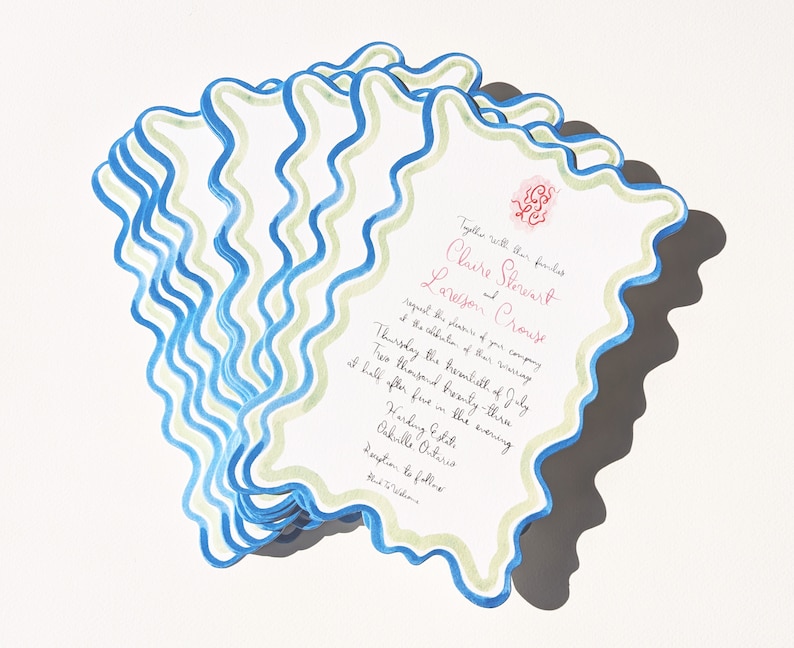 CS
LC
Together with their families
Claire Stewart
and
Lawson Crouse
request the pleasure of your company
at the celebration of their marriage
Thursday the twentieth of July
Two thousand twenty-three
at half after five in the evening
Harding Estate
Oakville, Ontario
Reception to follow